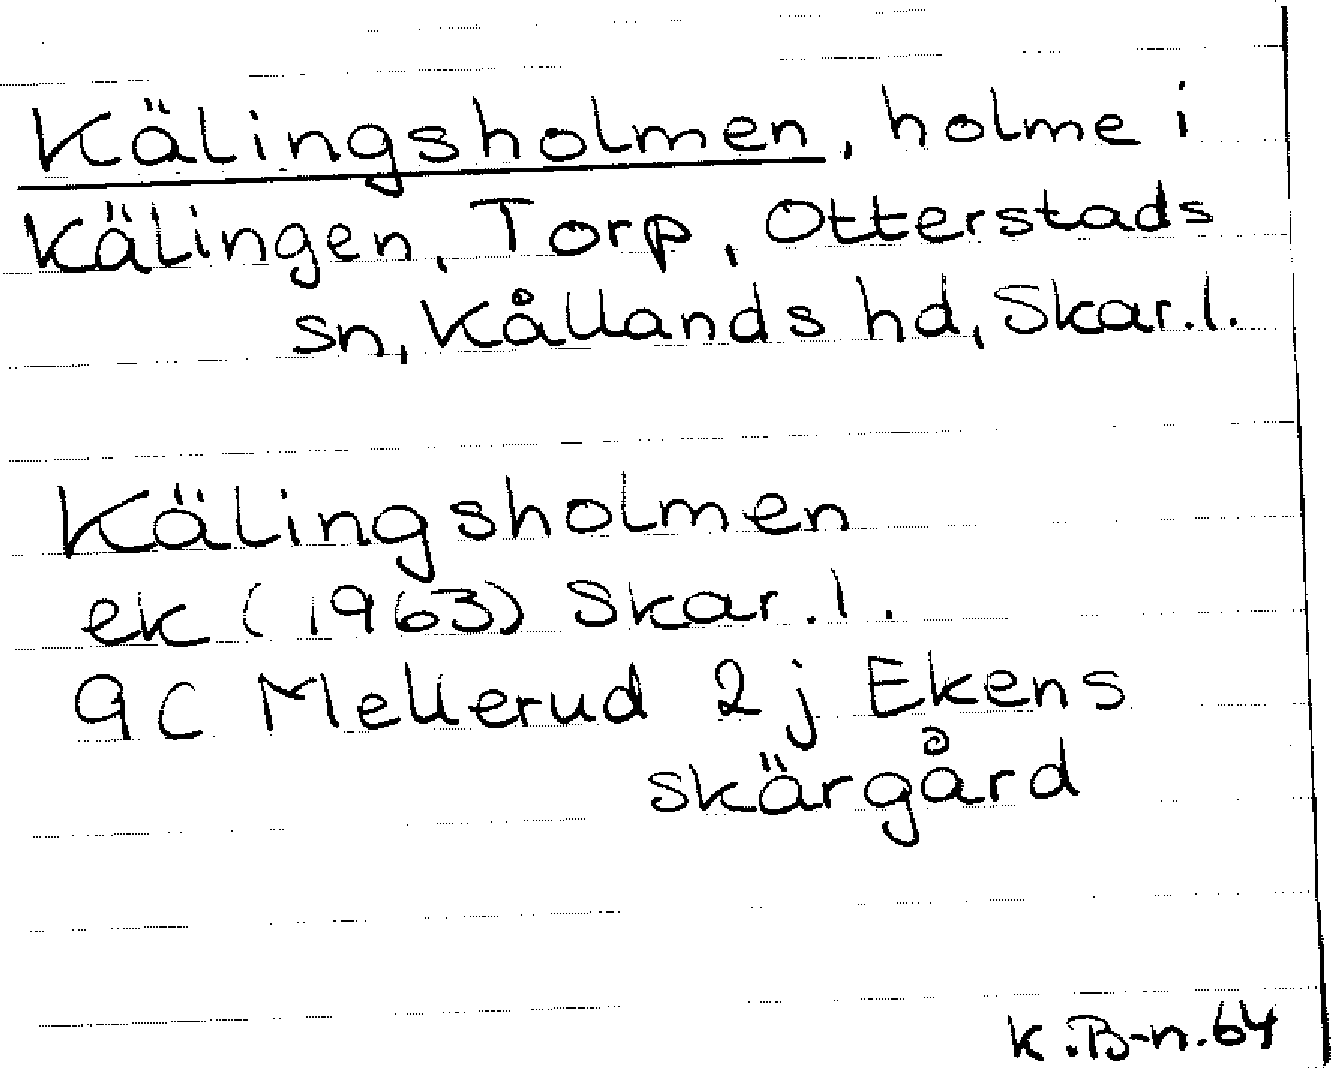 Kälingsholmen, holme i
Kälingen, Torp, Otterstads
sn, Kållands hd, Skar.l.
Kälingsholmen
ek (1963) Skar.l.
9C Mellerud 2j Ekens
skärgård
K.B-n.64